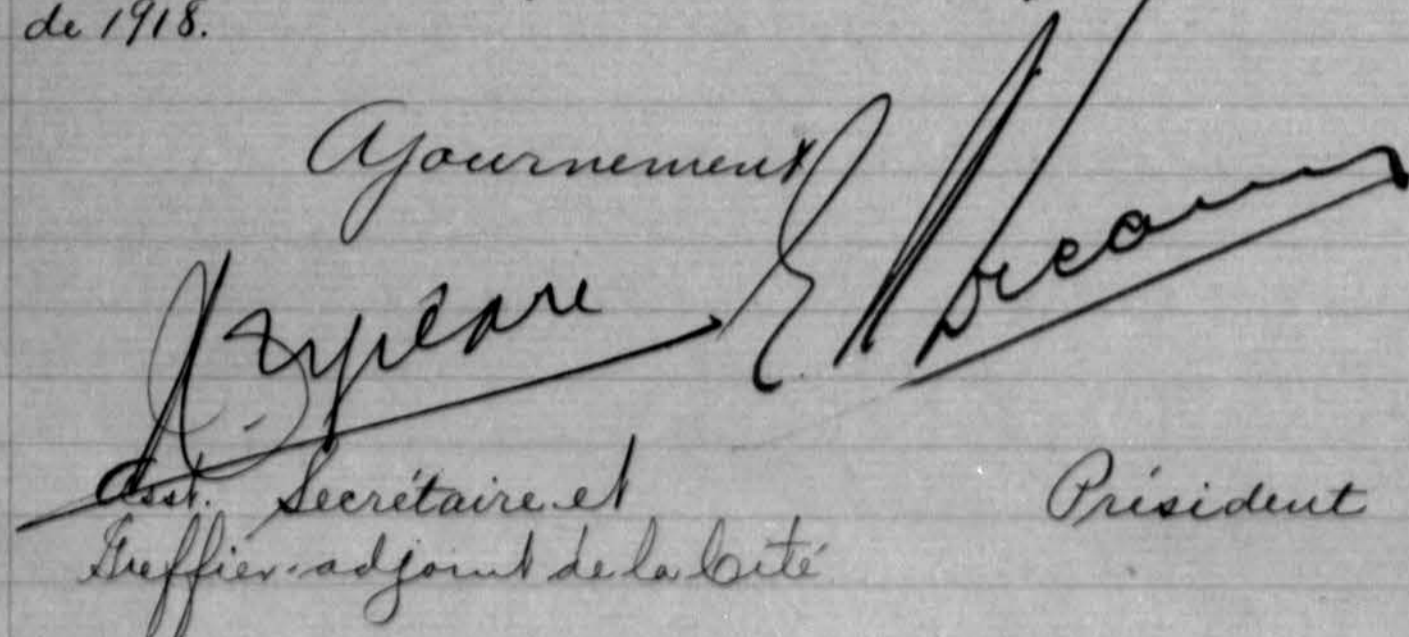 de 1918.
Ajournement
Asst. Secrétaire et
Greffier-adjoint de la Cité
Président